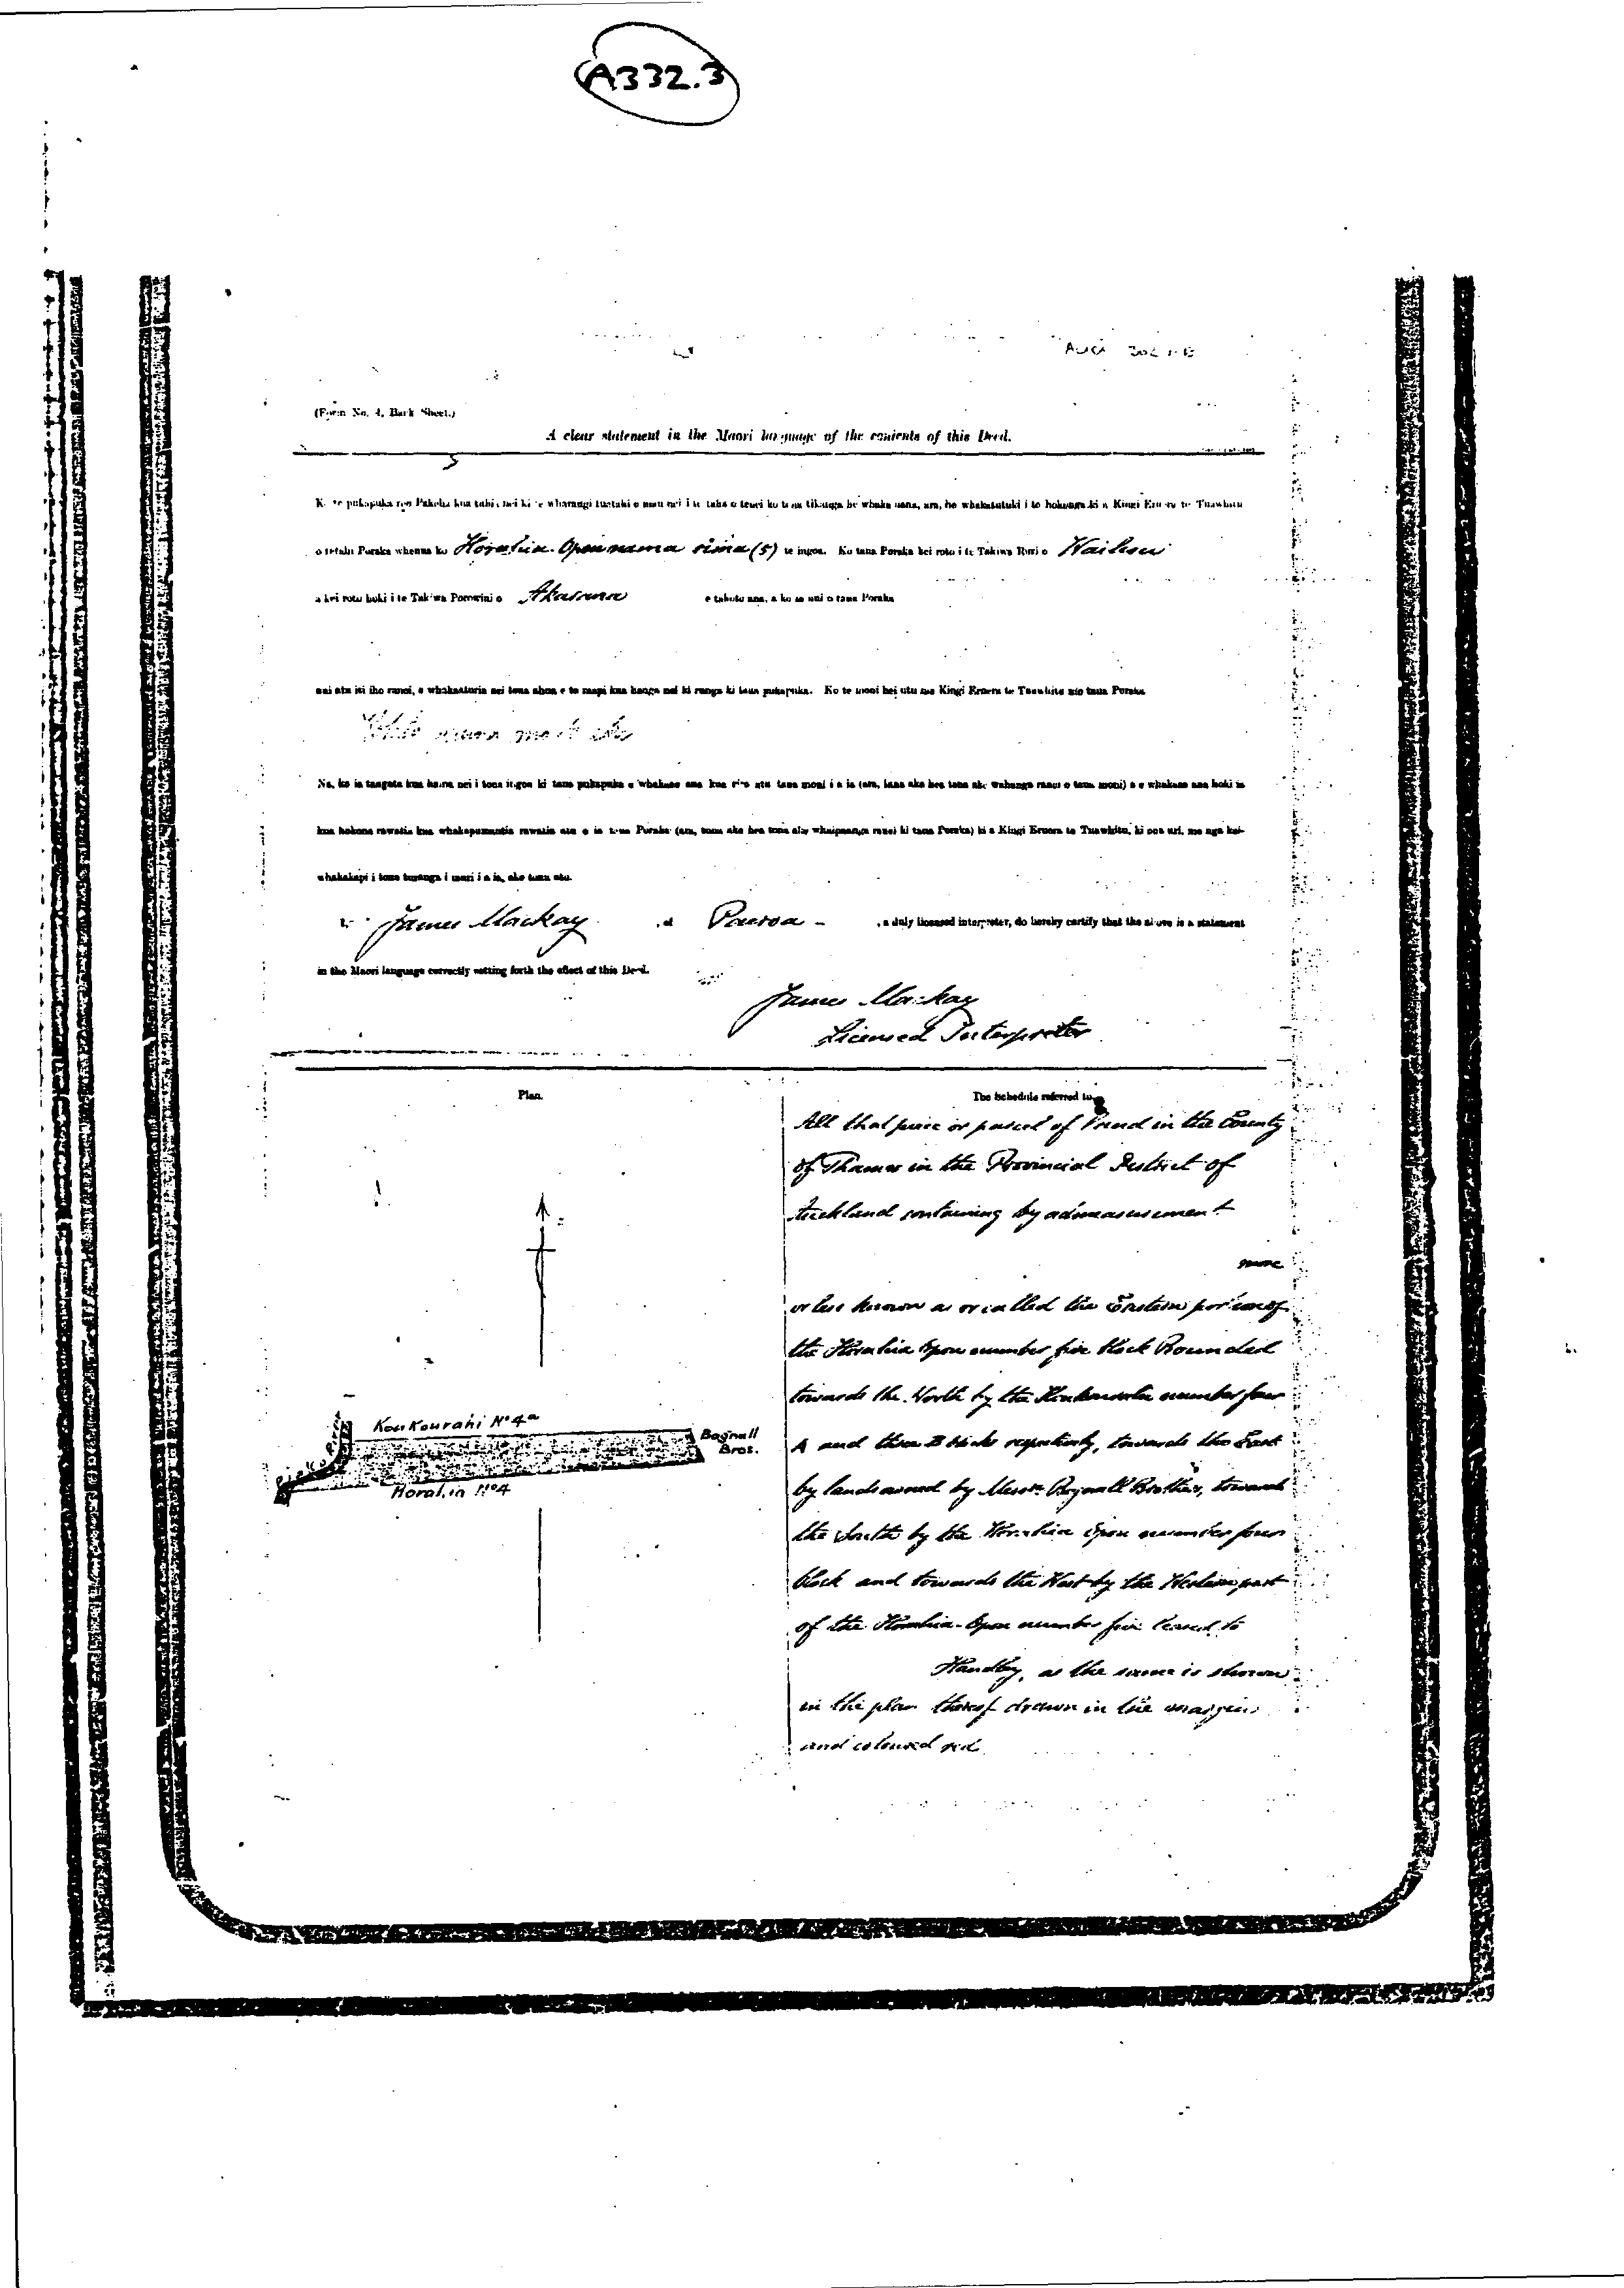 A332.3
(Form No. 4, Back Sheet.)
A clear statement in the Maori language of the contents of this Deed.
te pukapuka reo Pakeha kua tuhia nei ki te wharangi tuatahi o mua nei i te taha o tenei ko tona tikanga he whaka mana, ara, he whakatutuki i te hokonga ki a Kingi Eruera te Tuawhitu
o tetahi Poraka whenua ko Horahia Opou nama rima (5) te ingoa. Ko taua Poraka kei roto i te Takiwa Ruri o Waihou
a kei roto hoki i te Takiwa Porowini o Akarana e takoto ana, a ko te nui o taua Poraka
nui atu iti iho ranei, e whakaaturia nei tona ahua e te mapi kua hanga nei ki runga ki taua pukapuka. Ko te moni hei utu ma Kingi Eruera te Tuawhitu mo taua Poraka
Na, ko ia tangata kua haina nei i tona ingoa ki taua pukapuka e whakaae ana kua riro atu taua moni i a ia (ara, tana ake hea tona ake wahanga ranei o taua moni) a e whakaae ana hoki ia
kua hokona rawatia kua whakapumautia rawatia atu e ia taua Poraka (ara, tona ake hea tona ake whaipaanga ranei ki taua Poraka) ki a Kingi Eruera te Tuawhitu, ki ona uri, me nga kai-
whakakapi i tona turanga i muri i a ia, ake tonu atu.
I, James Mackay of Paeroa , a duly licensed interpreter, do hereby certify that the above is a statement
in the Maori language correctly setting forth the effect of this Deed.
James Mackay
Licensed Interpreter
Plan.
The Schedule referred to
All that piece or parcel of Land in the County
of Thames in the Provincial District of
Auckland containing by admeasurement
more
or less known as or called the Eastern portion of
the Horahia Opou number five block Bounded
towards the North by the Koukourahi number four
A and three B blocks respectively, towards the East
by lands owned by Messrs Bagnall Brothers, towards
the South by the Horahia Opou number four
block and towards the West by the Western part
of the Horahia Opou number five leased to
Handley, as the same is shown
in the plan thereof drawn in the margin
and coloured red
Koukourahi No 4a
Bagnall
Bros.
Horahia No 4